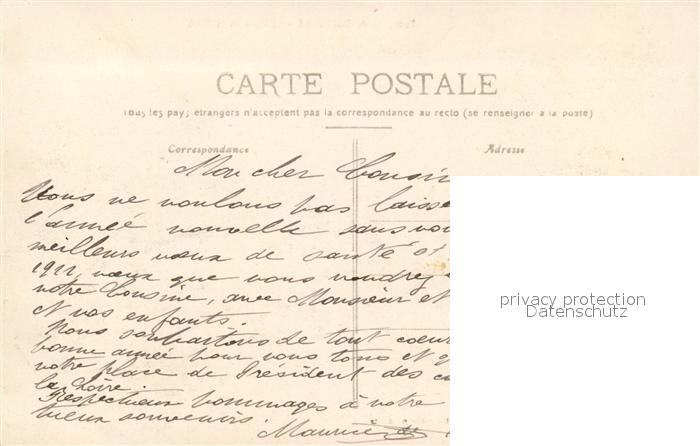 CARTE POSTALE
Tous les pays étrangers n'acceptent pas la correspondance au recto (se renseigner à la poste)
Correspondance
Adresse
Mon cher Cousin
Nous ne voulons pas laisse
l'année nouvelle sans vou
meilleurs vœux de santé et
1911, vœux que vous voudrez
votre Cousine, avec Monsieur et
et vos enfants.
Nous souhaitons de tout cœur
bonne année pour vous tous et q
votre place de Président des c
la Loire.
Respectueux hommages à votre
vieux souvenirs.
Maurice de
privacy protection
Datenschutz